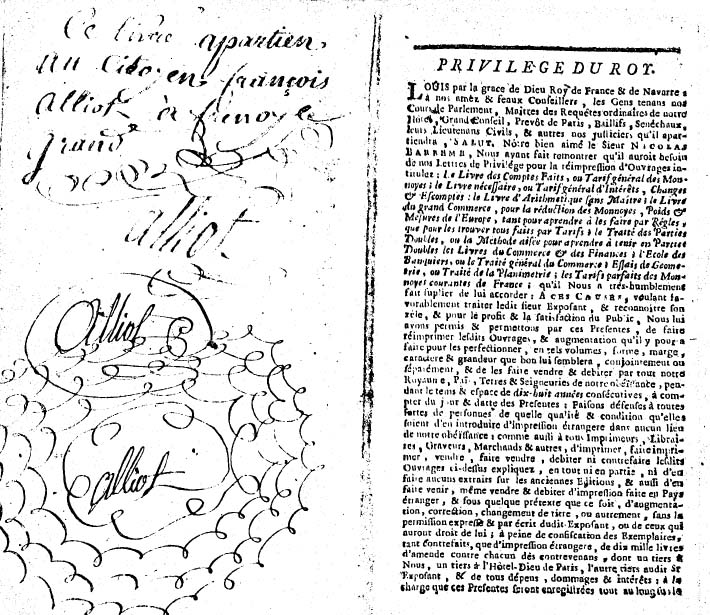 Ce livre apartien
Au Citoyen françois
alliot à
grand
alliot
alliot
alliot
PRIVILEGE DU ROY.
LOUIS par la grace de Dieu Roy de France & de Navarre :
A nos amez & feaux Conseillers, les Gens tenans nos
Cours de Parlement, Maîtres des Requêtes ordinaires de notre
Hôtel, Grand Conseil, Prevôt de Paris, Baillifs, Senéchaux,
leurs Lieutenans Civils, & autres nos justiciers qu'il apar-
tiendra, SALUT. Nôtre bien aimé le Sieur NICOLAS
BARREME, Nous ayant fait remontrer qu'il auroit besoin
de nos Lettres de Privilége pour la réimpression d'Ouvrages in-
titulez : Le Livre des Comptes Faits, ou Tarif général des Mon-
noyes ; le Livre nécessaire, ou Tarif général d'Intérêts, Changes
& Escomptes : le Livre d'Arithmetique sans Maître : le Livre
du grand Commerce, pour la réduction des Monnoyes, Poids &
Mesures de l'Europe, tant pour aprendre à les faire par Régles,
que pour les trouver tous faits par Tarifs ; le Traité des Parties
Doubles, ou la Methode aisée pour aprendre à tenir en Parties
Doubles les Livres du Commerce & des Finances ; l'Ecole des
Banquiers, ou le Traité général du Commerce ; Essais de Geome-
trie, ou Traité de la Planimetrie ; les Tarifs parfaits des Mon-
noyes courantes de France ; qu'il Nous a très-humblement
fait suplier de lui accorder : A CES CAUSES, voulant fa-
vorablement traiter ledit sieur Exposant, & reconnoître son
zéle, & pour le profit & la satisfaction du Public, Nous lui
avons permis & permettons par ces Presentes, de faire
réimprimer lesdits Ouvrages, & augmentation qu'il y pourra
faire pour les perfectionner, en tels volumes, forme, marge,
caractere & grandeur que bon lui semblera, conjointement ou
séparément, & de les faire vendre & debiter par tout notre
Royaume, Païs, Terres & Seigneuries de notre obéissance, pen-
dant le tems & espace de dix-huit années consécutives, à com-
pter du jour & datte des Presentes : Faisons défenses à toutes
sortes de personnes de quelle qualité & condition qu'elles
soient d'en introduire d'impression étrangere dans aucun lieu
de notre obéissance : comme aussi à tous Imprimeurs, Librai-
res, Graveurs, Marchands & autres, d'imprimer, faire impri-
mer, vendre, faire vendre, debiter ni contrefaire lesdits
Ouvrages ci-dessus expliquez, en tout ni en partie, ni d'en
faire aucuns extraits sur les anciennes Editions, & aussi d'en
faire venir, même vendre & debiter d'impression faite en Pays
étranger, & sous quelque prétexte que ce soit, d'augmenta-
tion, correction, changement de titre, ou autrement, sans la
permission expresse & par écrit dudit Exposant, ou de ceux qui
auront droit de lui ; à peine de confiscation des Exemplaires,
tant contrefaits, que d'impression étrangere, de dix mille livres
d'amende contre chacun des contrevenans, dont un tiers à
Nous, un tiers à l'Hôtel-Dieu de Paris, l'autre tiers audit Sr
Exposant, & de tous dépens, dommages & intérêts : à la
charge que ces Presentes seront enregistrées tout au long sur le